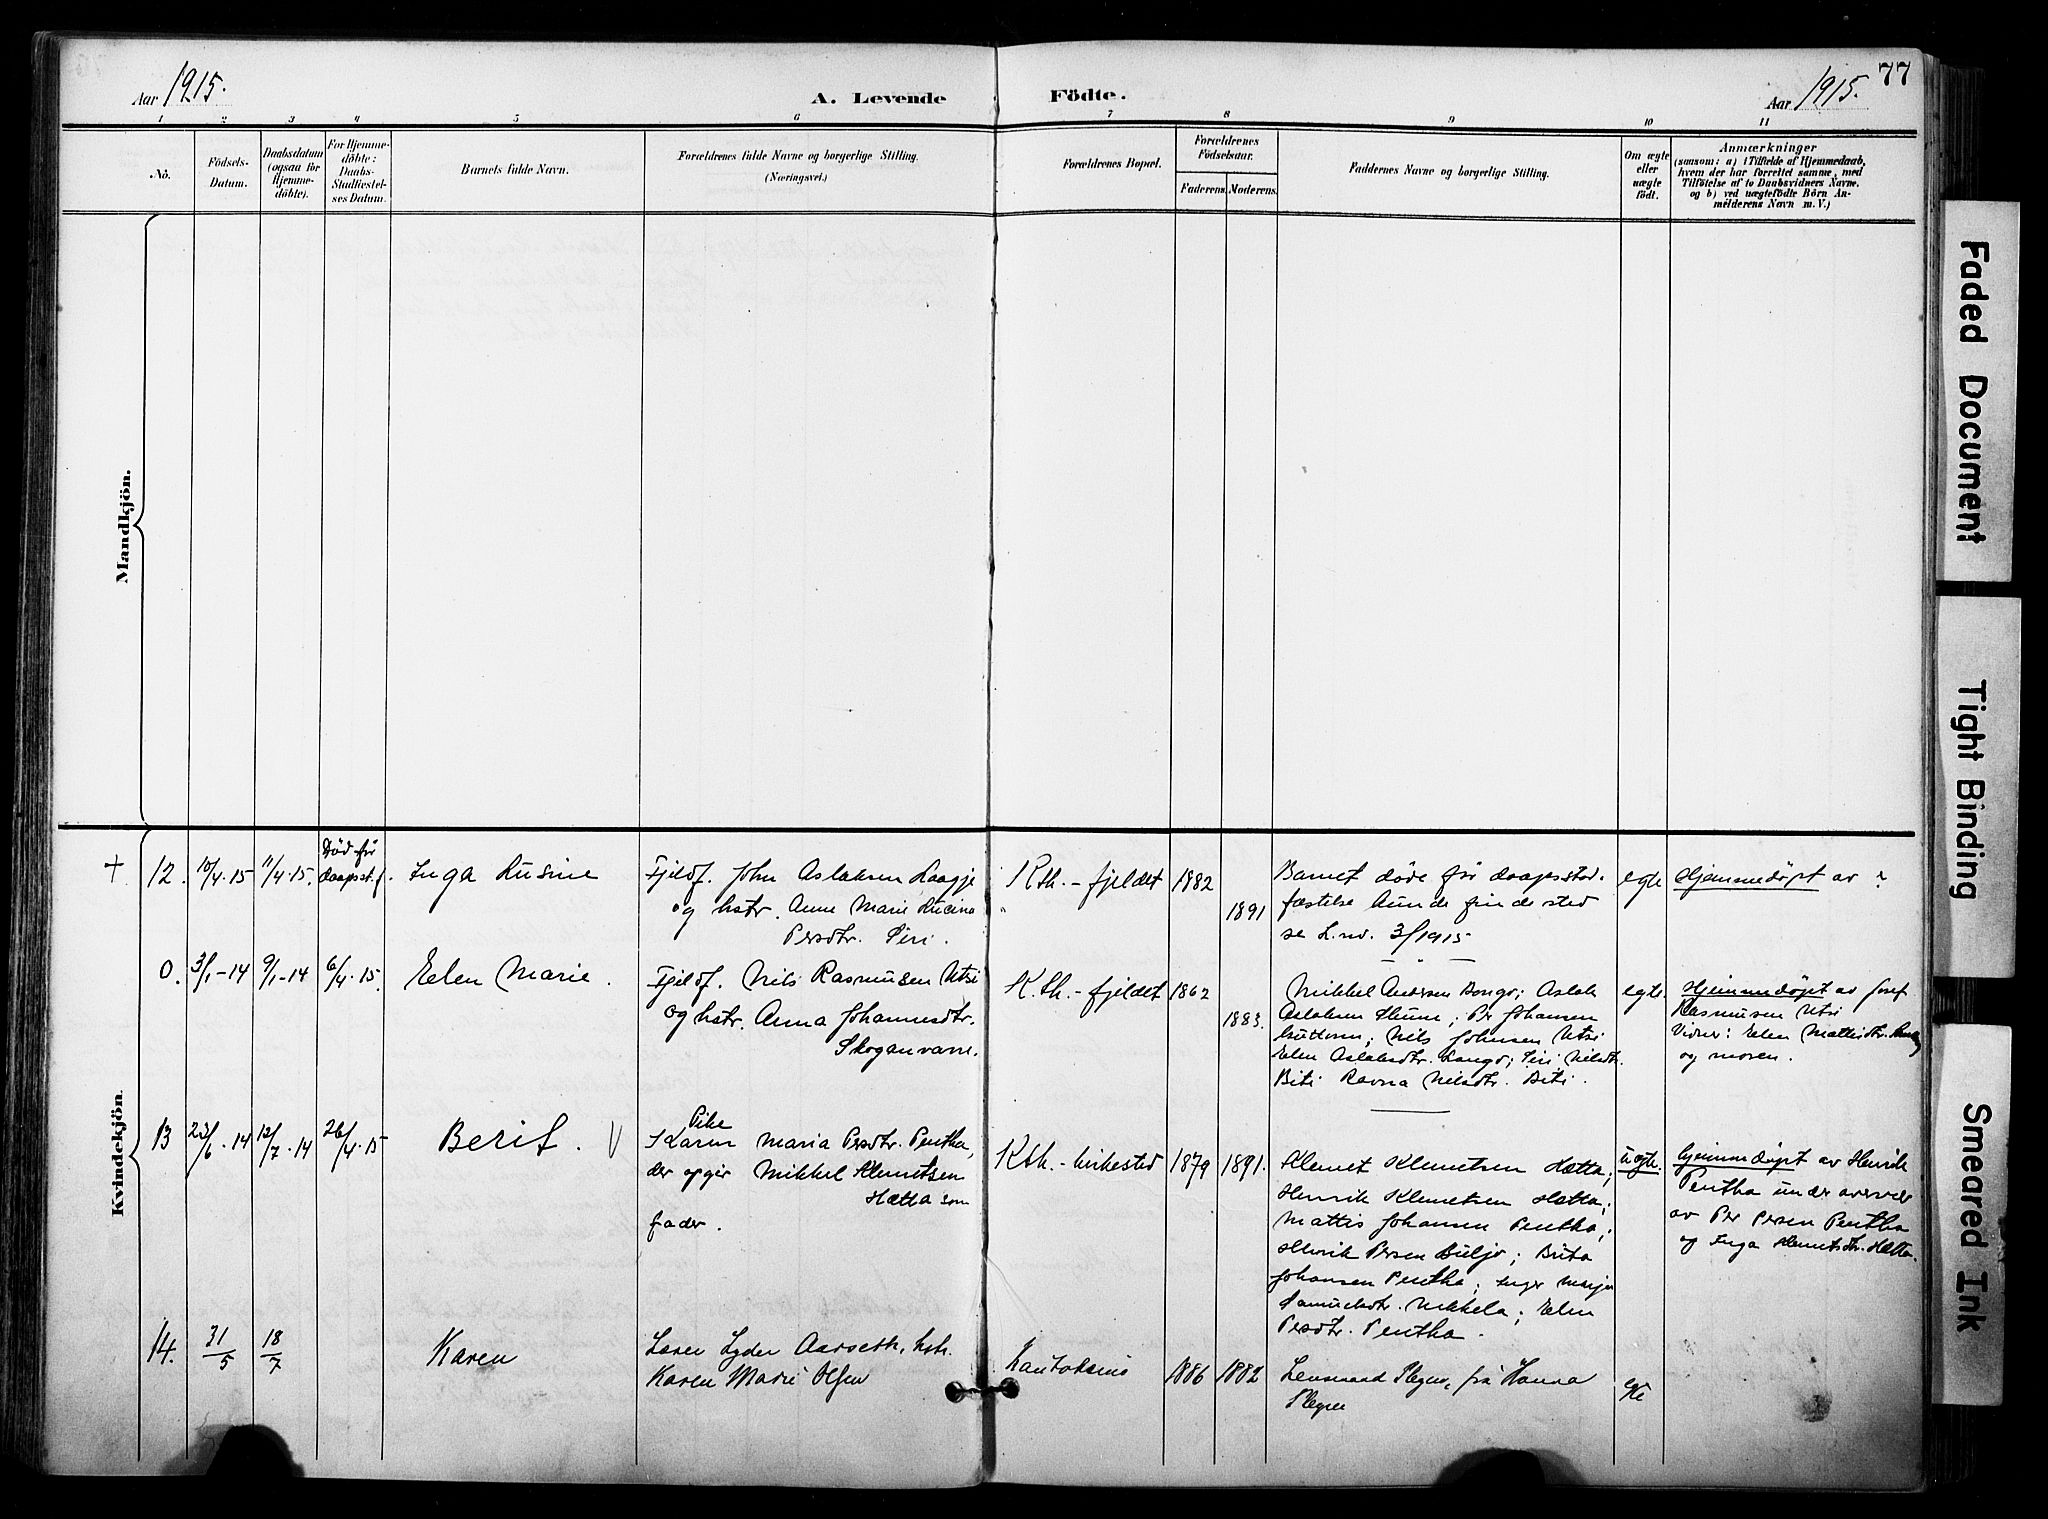 77
Aar 1915.
A. Levende Födte.
Aar 1915.
1 2 3 4 5 6 7 8 9 10 11
No.
Födsels-Datum.
Daabsdatum (ogsaa for Hjemme-döbte).
For Hjemme-döbte: Daabs-Stadfæstel-ses Datum.
Barnets fulde Navn.
Forældrenes fulde Navne og borgerlige Stilling.
(Næringsvei.)
Forældrenes Bopæl.
Forældrenes Födselsaar.
Faderens. Moderens.
Faddernes Navne og borgerlige Stilling.
Om ægte eller uægte födt.
Anmærkninger
(saasom: a) i Tilfælde af Hjemmedaab,
hvem der har forrettet samme, med
Tilföielse af to Daabsvidners Navne.
og b) ved uægtefödte Börn An-
melderens Navn m. V.)
Mandkjön.
Kvindekjön.
+ 12. 10/4-15 11/4-15. Död før daapsst.f. Inga Lusine
Fjeldf. John Aslaksen
og hstr. Anne Marie Lucina
Persdtr. Siri.
Kth.-fjeldet 1882
1891
Barnet døde før daapsstad-
fæstelse kunde finde sted
se L.no. 3/1915
egte Hjemmedøpt av ?
0. 3/1-14 9/1-14 6/4-15. Elen Marie.
Fjeldf. Nils Rasmusen Utsi
og hstr. Anna Johannesdtr.
Skoganvarre.
K.th.-fjeldet 1862
1883.
Mikkel Andersen Bongo; Aslak
Aslaksen Skum; Per Johansen
Nils Johnsen Utsi
Elen Aslaksdtr. Siri Nilsdtr.
Biti Ravna Nilsdtr. Biti.
egte. Hjemmedøpt av Josef
Rasmusen Utsi
Vidner: Elen Mattisdtr.
og moren.
13 23/6-14 12/7-14 26/4-15 Berit. V
Pike
Karen Maria Persdtr. Pentha,
der opgir Mikkel Klemetsen
Hætta som
fader.
Kth.-kirkested 1879 1891.
Klemet Klemetsen Hætta;
Henrik Klemetsen Hætta;
Mattis Johansen Pentha;
Henrik Persen Buljo; Brita
Johansen Pentha; Inger Marja
Samuelsdtr. Nikkela; Elen
Persdtr. Pentha.
uegte. hjemmedøpt av Henrik
Pentha under overvær
av Per Persen Pentha
og Inga Klemetsdtr. Hætta.
14. 31/5 18/7 Karen
Lyder Aarseth, hstr.
Karen Marie Olsen
Kautokeino 1886 1882
Lensmand fru Hanna
egte
Faded Document
Tight Binding
Smeared Ink